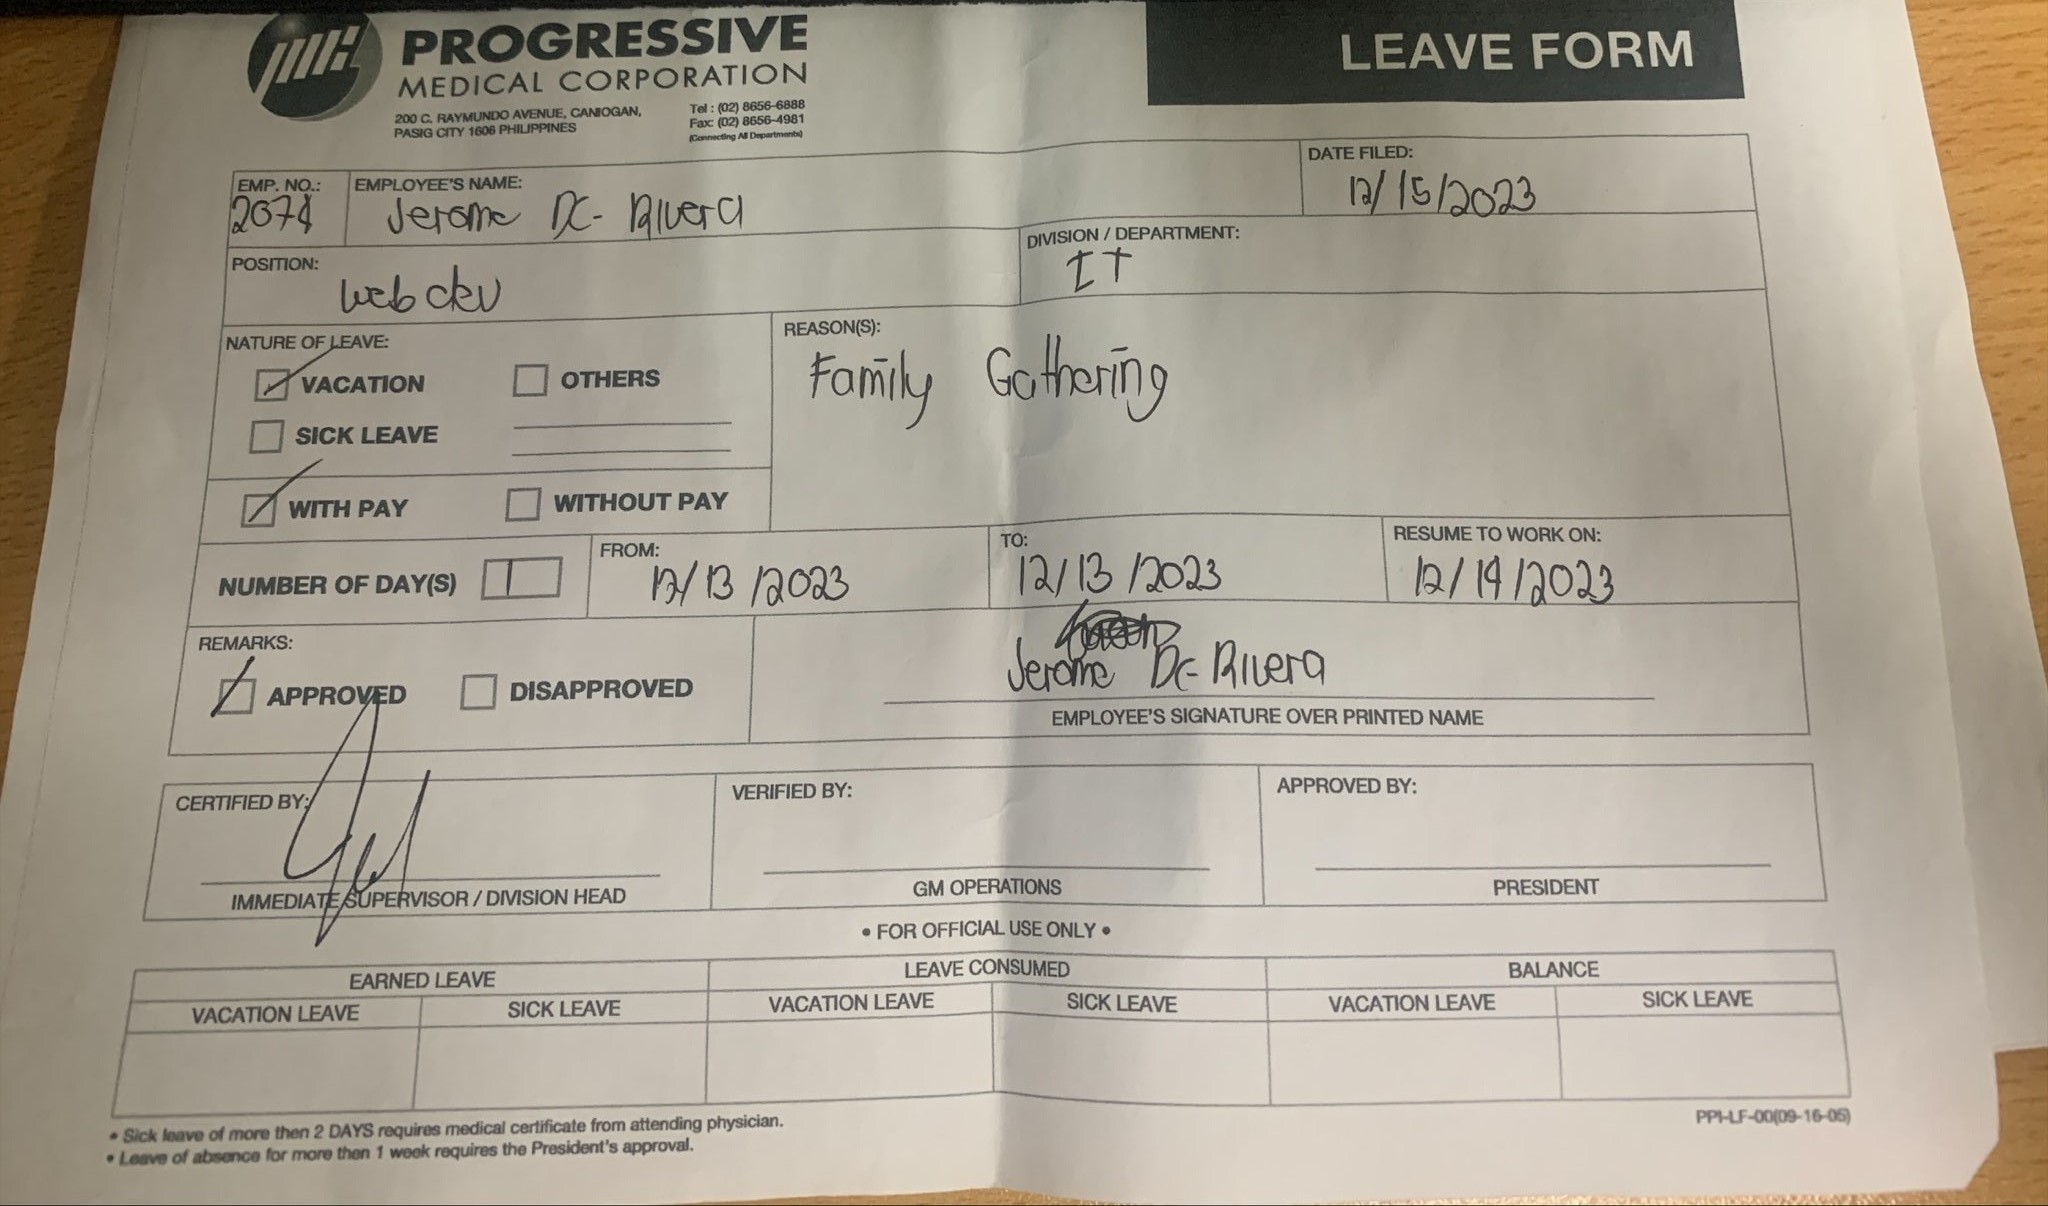 PROGRESSIVE
MEDICAL CORPORATION
200 C. RAYMUNDO AVENUE, CANIOGAN,
PASIG CITY 1606 PHILIPPINES
Tel : (02) 8656-6888
Fax: (02) 8656-4981
(Connecting All Departments)
LEAVE FORM
EMP. NO.:
EMPLOYEE'S NAME:
Jerome DC- Rivera
DATE FILED:
12/15/2023
POSITION:
web dev
DIVISION / DEPARTMENT:
IT
NATURE OF LEAVE:
VACATION
OTHERS
SICK LEAVE
WITH PAY
WITHOUT PAY
REASON(S):
Family Gathering
NUMBER OF DAY(S) 1
FROM:
12/13/2023
TO:
12/13/2023
RESUME TO WORK ON:
12/14/2023
REMARKS:
APPROVED
DISAPPROVED
Jerome DC- Rivera
EMPLOYEE'S SIGNATURE OVER PRINTED NAME
CERTIFIED BY:
IMMEDIATE SUPERVISOR / DIVISION HEAD
VERIFIED BY:
GM OPERATIONS
APPROVED BY:
PRESIDENT
• FOR OFFICIAL USE ONLY •
EARNED LEAVE
LEAVE CONSUMED
BALANCE
VACATION LEAVE
SICK LEAVE
VACATION LEAVE
SICK LEAVE
VACATION LEAVE
SICK LEAVE
• Sick leave of more then 2 DAYS requires medical certificate from attending physician.
• Leave of absence for more then 1 week requires the President's approval.
PPI-LF-00(09-16-05)